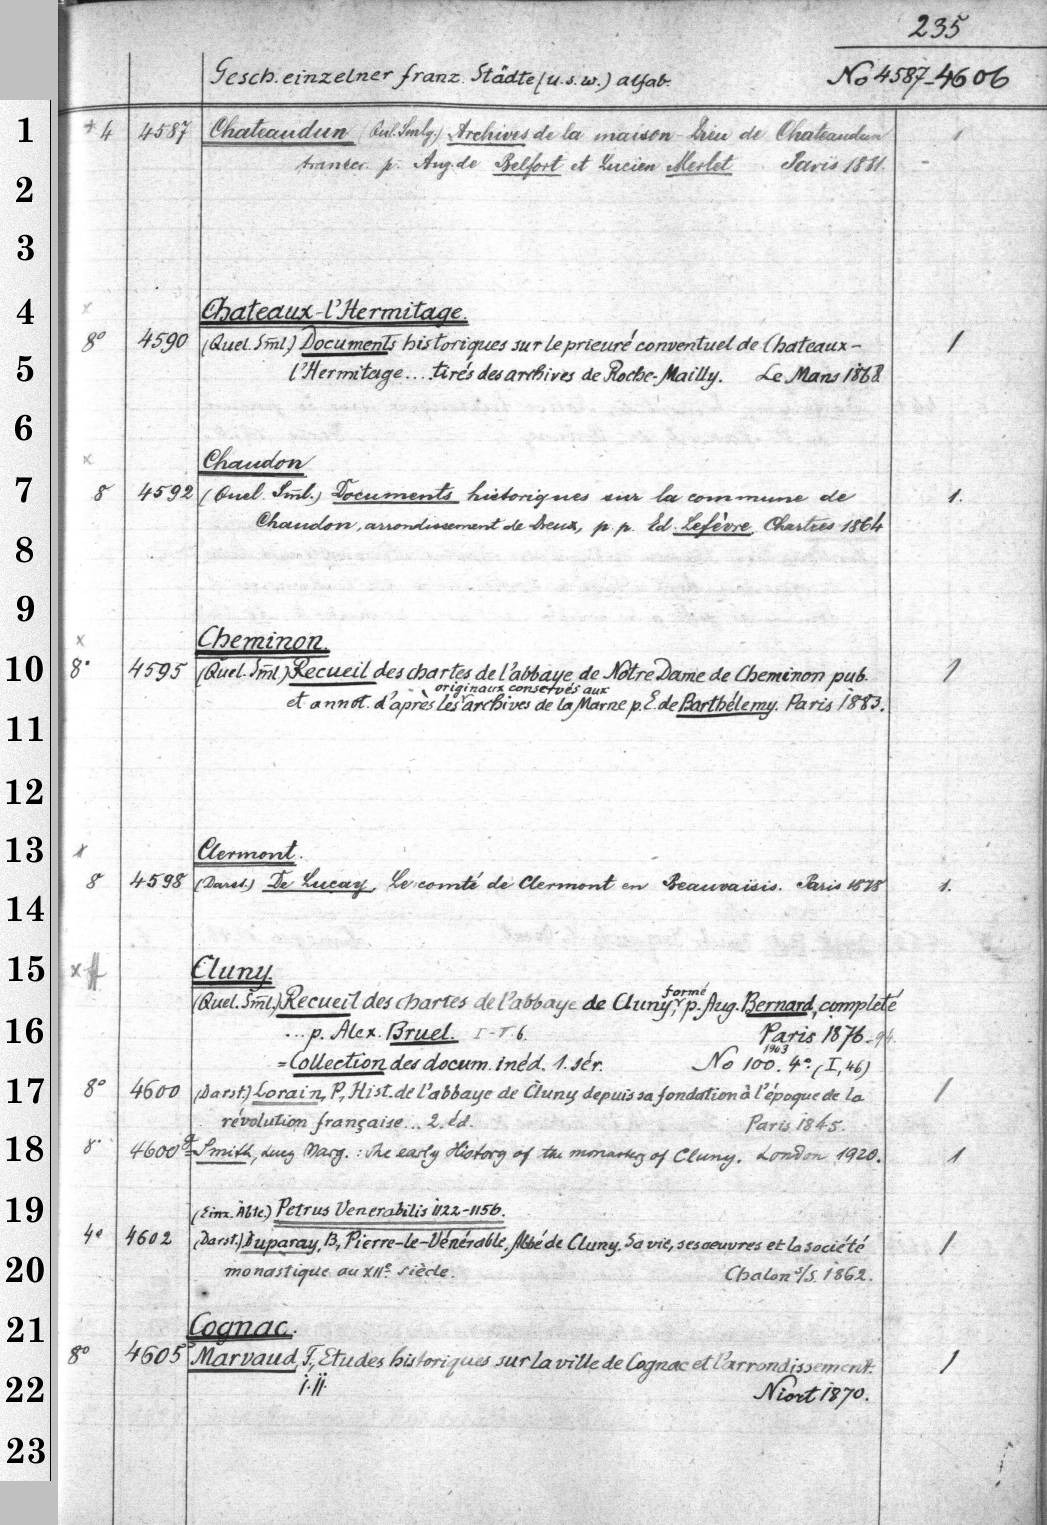 235
Gesch. einzelner franz. Städte (u.s.w.) alfab. No 4587-4606
1 + 4 4587 Chateaudun (Quel. Smlg.) Archives de la maison-Dieu de Chateaudun 1
transcr. p. Aug. de Belfort et Lucien Merlet Paris 1881. -
2
3
4 x Chateaux-l'Hermitage.
8° 4590 (Quel. Sml.) Documents historiques sur le prieuré conventuel de Chateaux- 1
5 l'Hermitage ... tirés des archives de Roche-Mailly. Le Mans 1868
6
x Chaudon
7 8 4592 (Quel. Sml.) Documents historiques sur la commune de 1.
Chaudon, arrondissement de Dreux, p. p. Ed. Lefèvre Chartres 1864
8
9
x Cheminon.
10 8° 4595 (Quel. Sml.) Recueil des chartes de l'abbaye de Notre Dame de Cheminon pub. 1
originaux conservés aux
et annot. d'après les archives de la Marne p. E. de Barthélemy. Paris 1883.
11
12
13 x Clermont.
8 4598 (Darst.) De Luçay, Le comté de Clermont en Beauvaisis. Paris 1878 1.
14
15 x Cluny.
formé
(Quel. Sml.) Recueil des chartes de l'abbaye de Cluny, p. Aug. Bernard, completé
16 ... p. Alex. Bruel. I-T 6. Paris 1876-94.
1903
= Collection des docum. inéd. 1. sér. No 100. 4° (I,46)
17 8° 4600 (Darst.) Lorain, P, Hist. de l'abbaye de Cluny depuis sa fondation à l'époque de la 1
révolution française ... 2. éd. Paris 1845.
18 8° 4600a Smith, Lucy Marg.: The early History of the monastery of Cluny. London 1920. 1
19 (Einz. Äbte.) Petrus Venerabilis 1122-1156.
4° 4602 (Darst.) Duparay, B, Pierre-le-Vénérable, Abbé de Cluny. Sa vie, ses oeuvres et la société 1
20 monastique au XIIe siècle. Chalon s/S. 1862.
21 Cognac.
8° 4605 Marvaud, F, Etudes historiques sur la ville de Cognac et l'arrondissement. 1
22 I. II. Niort 1870.
23